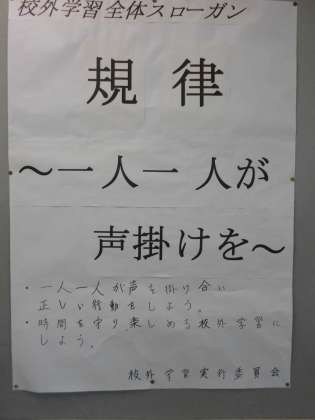 校外学習全体スローガン
規律
～一人一人が
声掛けを～
・一人一人が声を掛け合い
正しい行動をしよう。
・時間を守り楽しめる校外学習に
しよう。
校外学習実行委員会